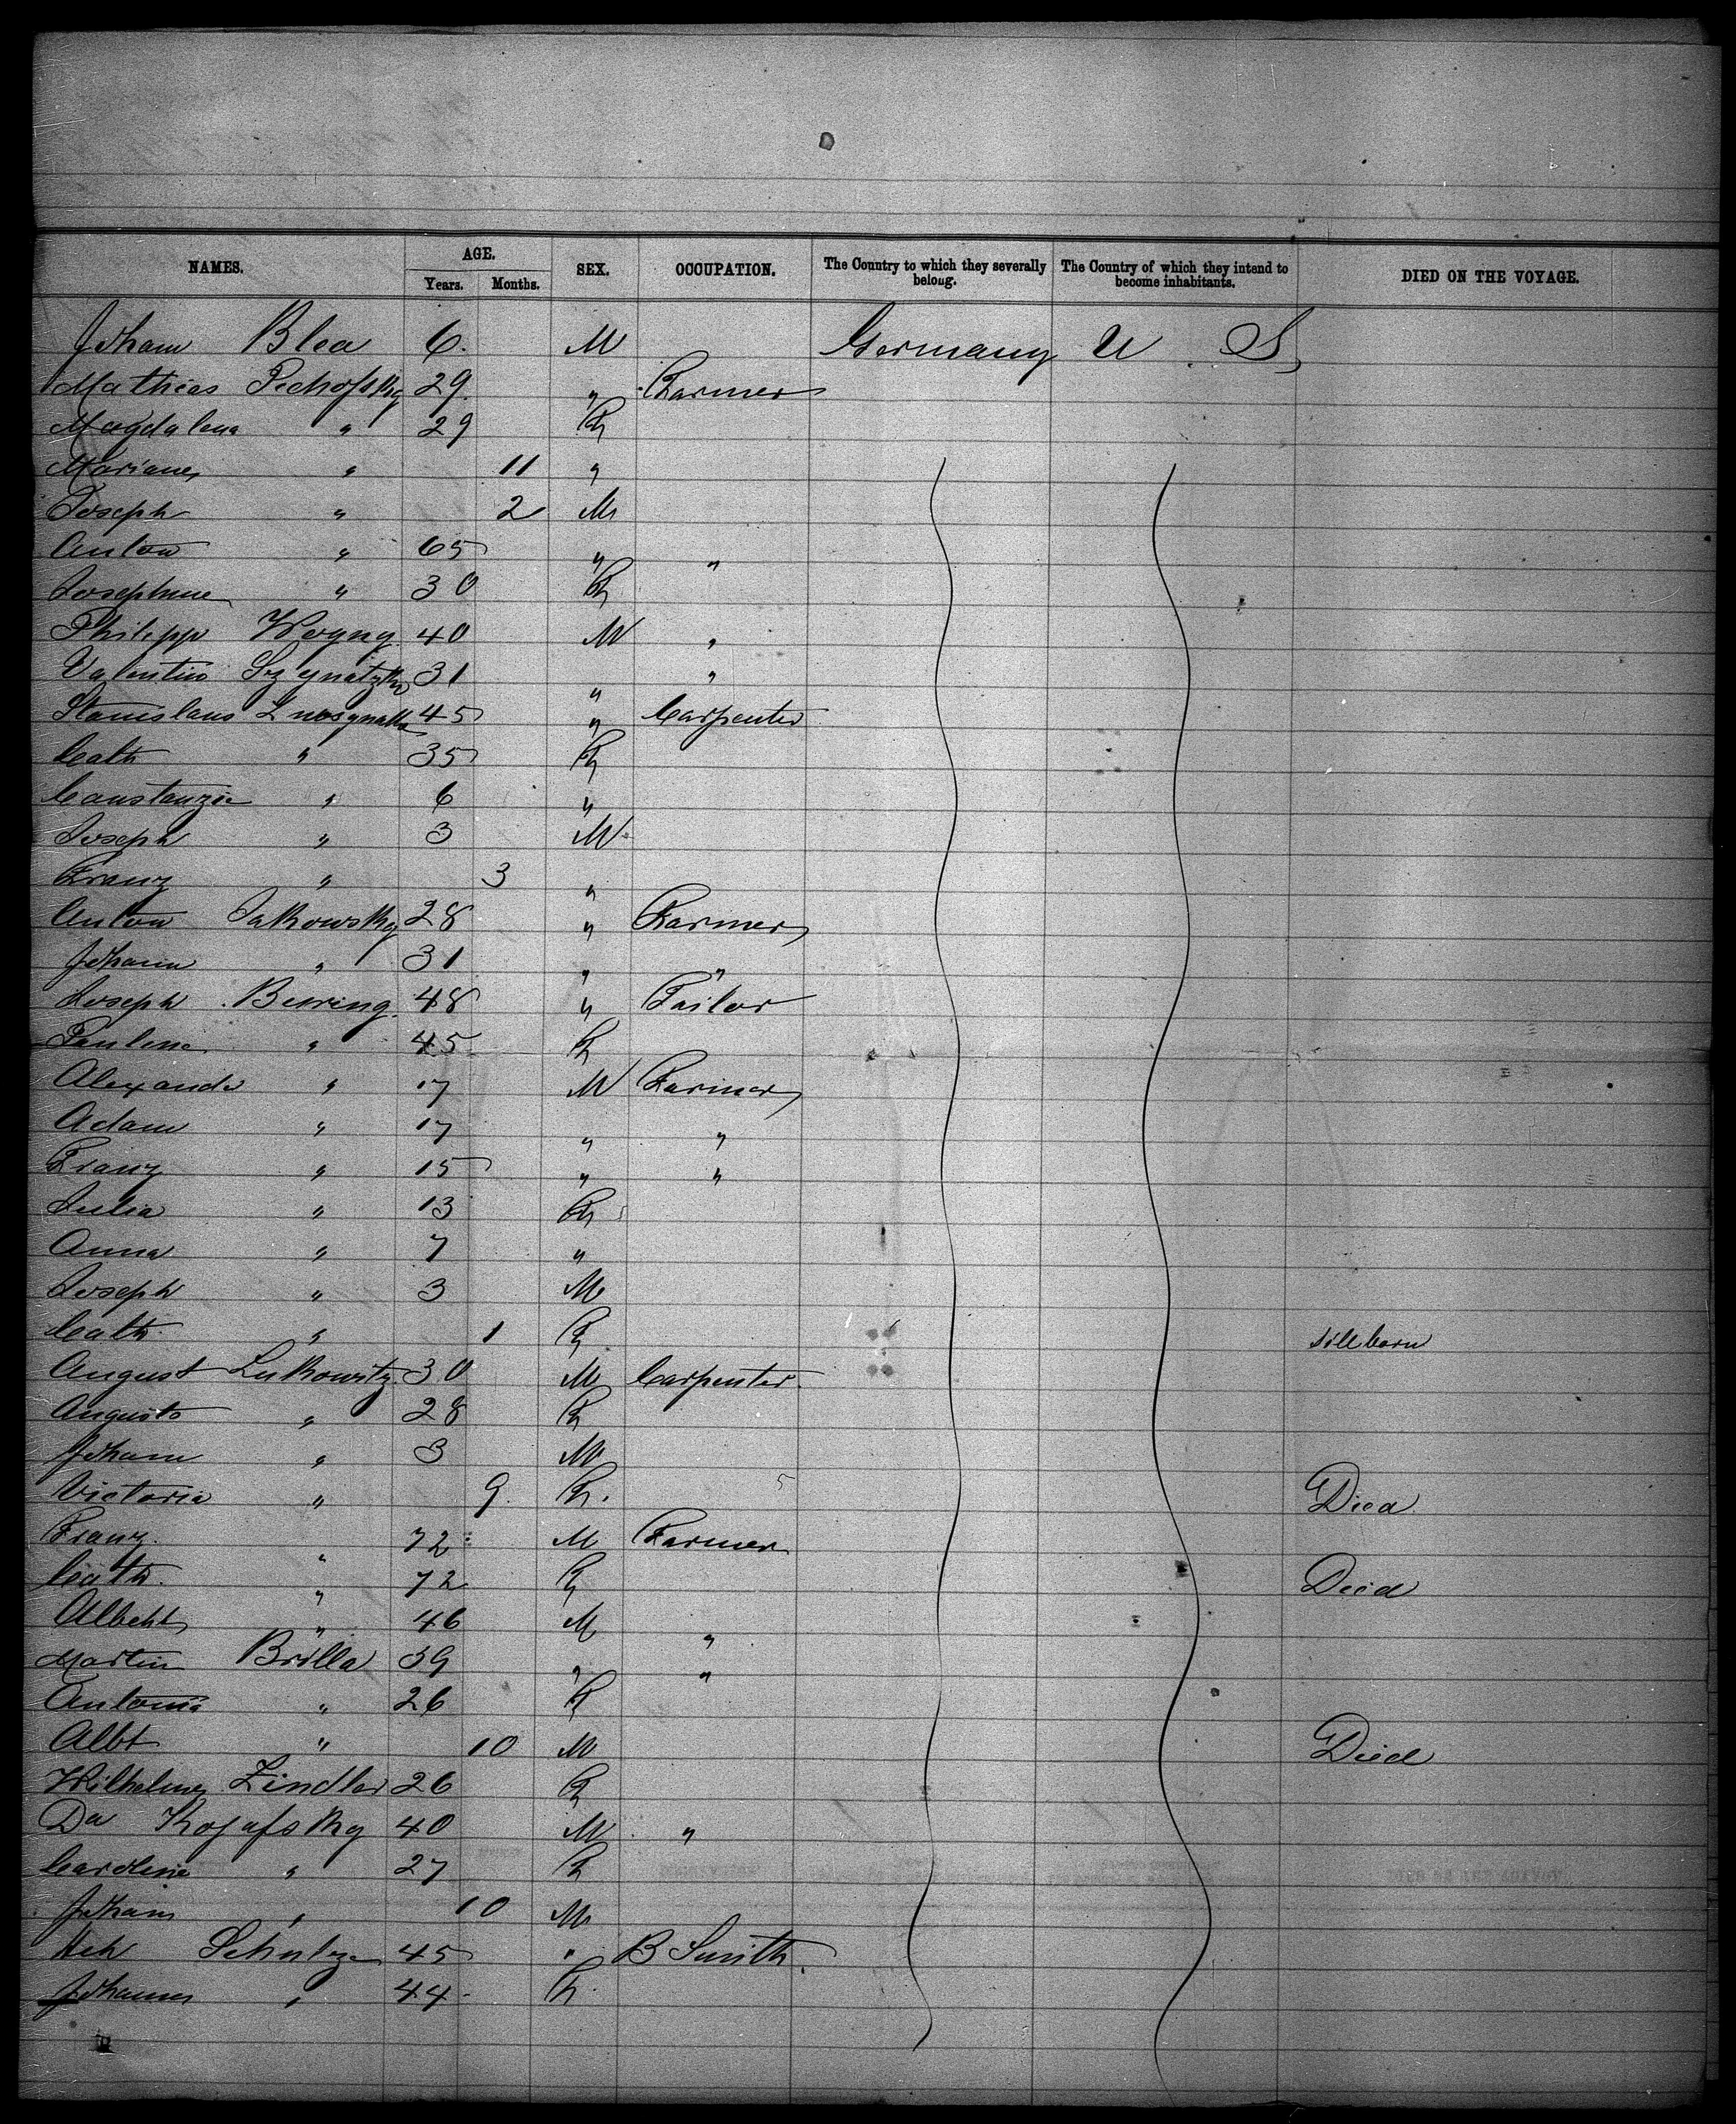 NAMES. AGE. SEX. OCCUPATION. The Country to which they severally belong. The Country of which they intend to become inhabitants. DIED ON THE VOYAGE.
Years. Months.
Johann Blea 6. M Germany U S
Mathias Pichofsky 29. " Farmer
Magdalena " 29 F
Mariane " 11 "
Joseph " 2 M
Anton " 65 " "
Josephine " 30 F
Philipp Woyny 40 M "
Valentin 31 " "
Stanislaus 45 " Carpenter
Cath " 35 F
Constanzie " 6 "
Joseph " 3 M
Franz " 3 "
Anton Jakowsky 28 " Farmer
Johann " 31 " "
Joseph Bewing 48 " Tailor
Pauline " 45 F
Alexander " 17 M Farmer
Adam " 17 " "
Franz " 15 " "
Julia " 13 F
Anna " 7 "
Joseph " 3 M
Cath. " 1 F stillborn
August Lukowitz 30 M Carpenter.
Augusta " 28 F
Johann " 3 M
Victoria " 9. F. Died
Franz. " 72 M Farmer
Cath. " 72 F Died
Albeht " 46 M "
Martin Brilla 39 " "
Antonia " 26 F
Albt " 10 M Died
Wilhelmy Zindler 26 F
Da Kojafsky 40 M "
Caroline " 27 F
Johann " 10 M
Hch Schulze 45 " B Smith.
Johanna " 44 F.